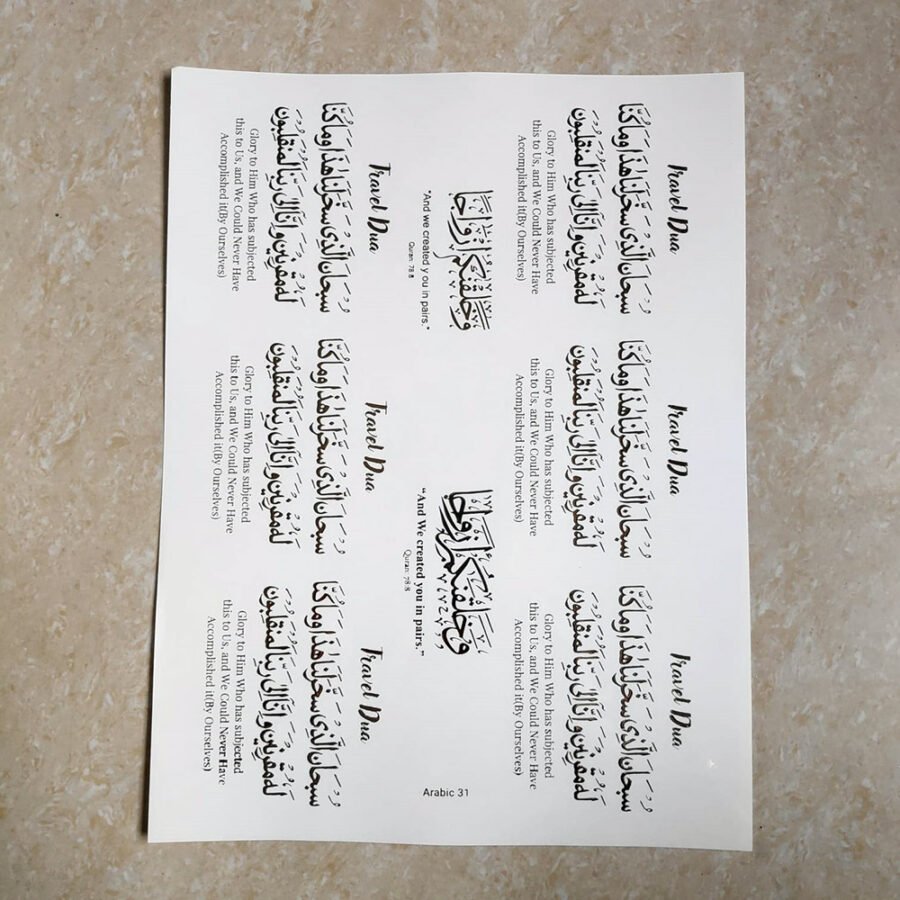 Travel Dua
سُبْحَانَ الَّذِي سَخَّرَ لَنَا هَٰذَا وَمَا كُنَّا
لَهُ مُقْرِنِينَ وَإِنَّا إِلَىٰ رَبِّنَا لَمُنْقَلِبُونَ
Glory to Him Who has subjected
this to Us, and We Could Never Have
Accomplished it(By Ourselves)
Travel Dua
سُبْحَانَ الَّذِي سَخَّرَ لَنَا هَٰذَا وَمَا كُنَّا
لَهُ مُقْرِنِينَ وَإِنَّا إِلَىٰ رَبِّنَا لَمُنْقَلِبُونَ
Glory to Him Who has subjected
this to Us, and We Could Never Have
Accomplished it(By Ourselves)
Travel Dua
سُبْحَانَ الَّذِي سَخَّرَ لَنَا هَٰذَا وَمَا كُنَّا
لَهُ مُقْرِنِينَ وَإِنَّا إِلَىٰ رَبِّنَا لَمُنْقَلِبُونَ
Glory to Him Who has subjected
this to Us, and We Could Never Have
Accomplished it(By Ourselves)
وَخَلَقْنَاكُمْ أَزْوَاجًا
"And we created y ou in pairs."
Quran 78:8
وَخَلَقْنَكُمْ أَزْوَجًا
"And We created you in pairs."
Quran 78:8
Arabic 31
Travel Dua
سُبْحَانَ الَّذِي سَخَّرَ لَنَا هَٰذَا وَمَا كُنَّا
لَهُ مُقْرِنِينَ وَإِنَّا إِلَىٰ رَبِّنَا لَمُنْقَلِبُونَ
Glory to Him Who has subjected
this to Us, and We Could Never Have
Accomplished it(By Ourselves)
Travel Dua
سُبْحَانَ الَّذِي سَخَّرَ لَنَا هَٰذَا وَمَا كُنَّا
لَهُ مُقْرِنِينَ وَإِنَّا إِلَىٰ رَبِّنَا لَمُنْقَلِبُونَ
Glory to Him Who has subjected
this to Us, and We Could Never Have
Accomplished it(By Ourselves)
Travel Dua
سُبْحَانَ الَّذِي سَخَّرَ لَنَا هَٰذَا وَمَا كُنَّا
لَهُ مُقْرِنِينَ وَإِنَّا إِلَىٰ رَبِّنَا لَمُنْقَلِبُونَ
Glory to Him Who has subjected
this to Us, and We Could Never Have
Accomplished it(By Ourselves)